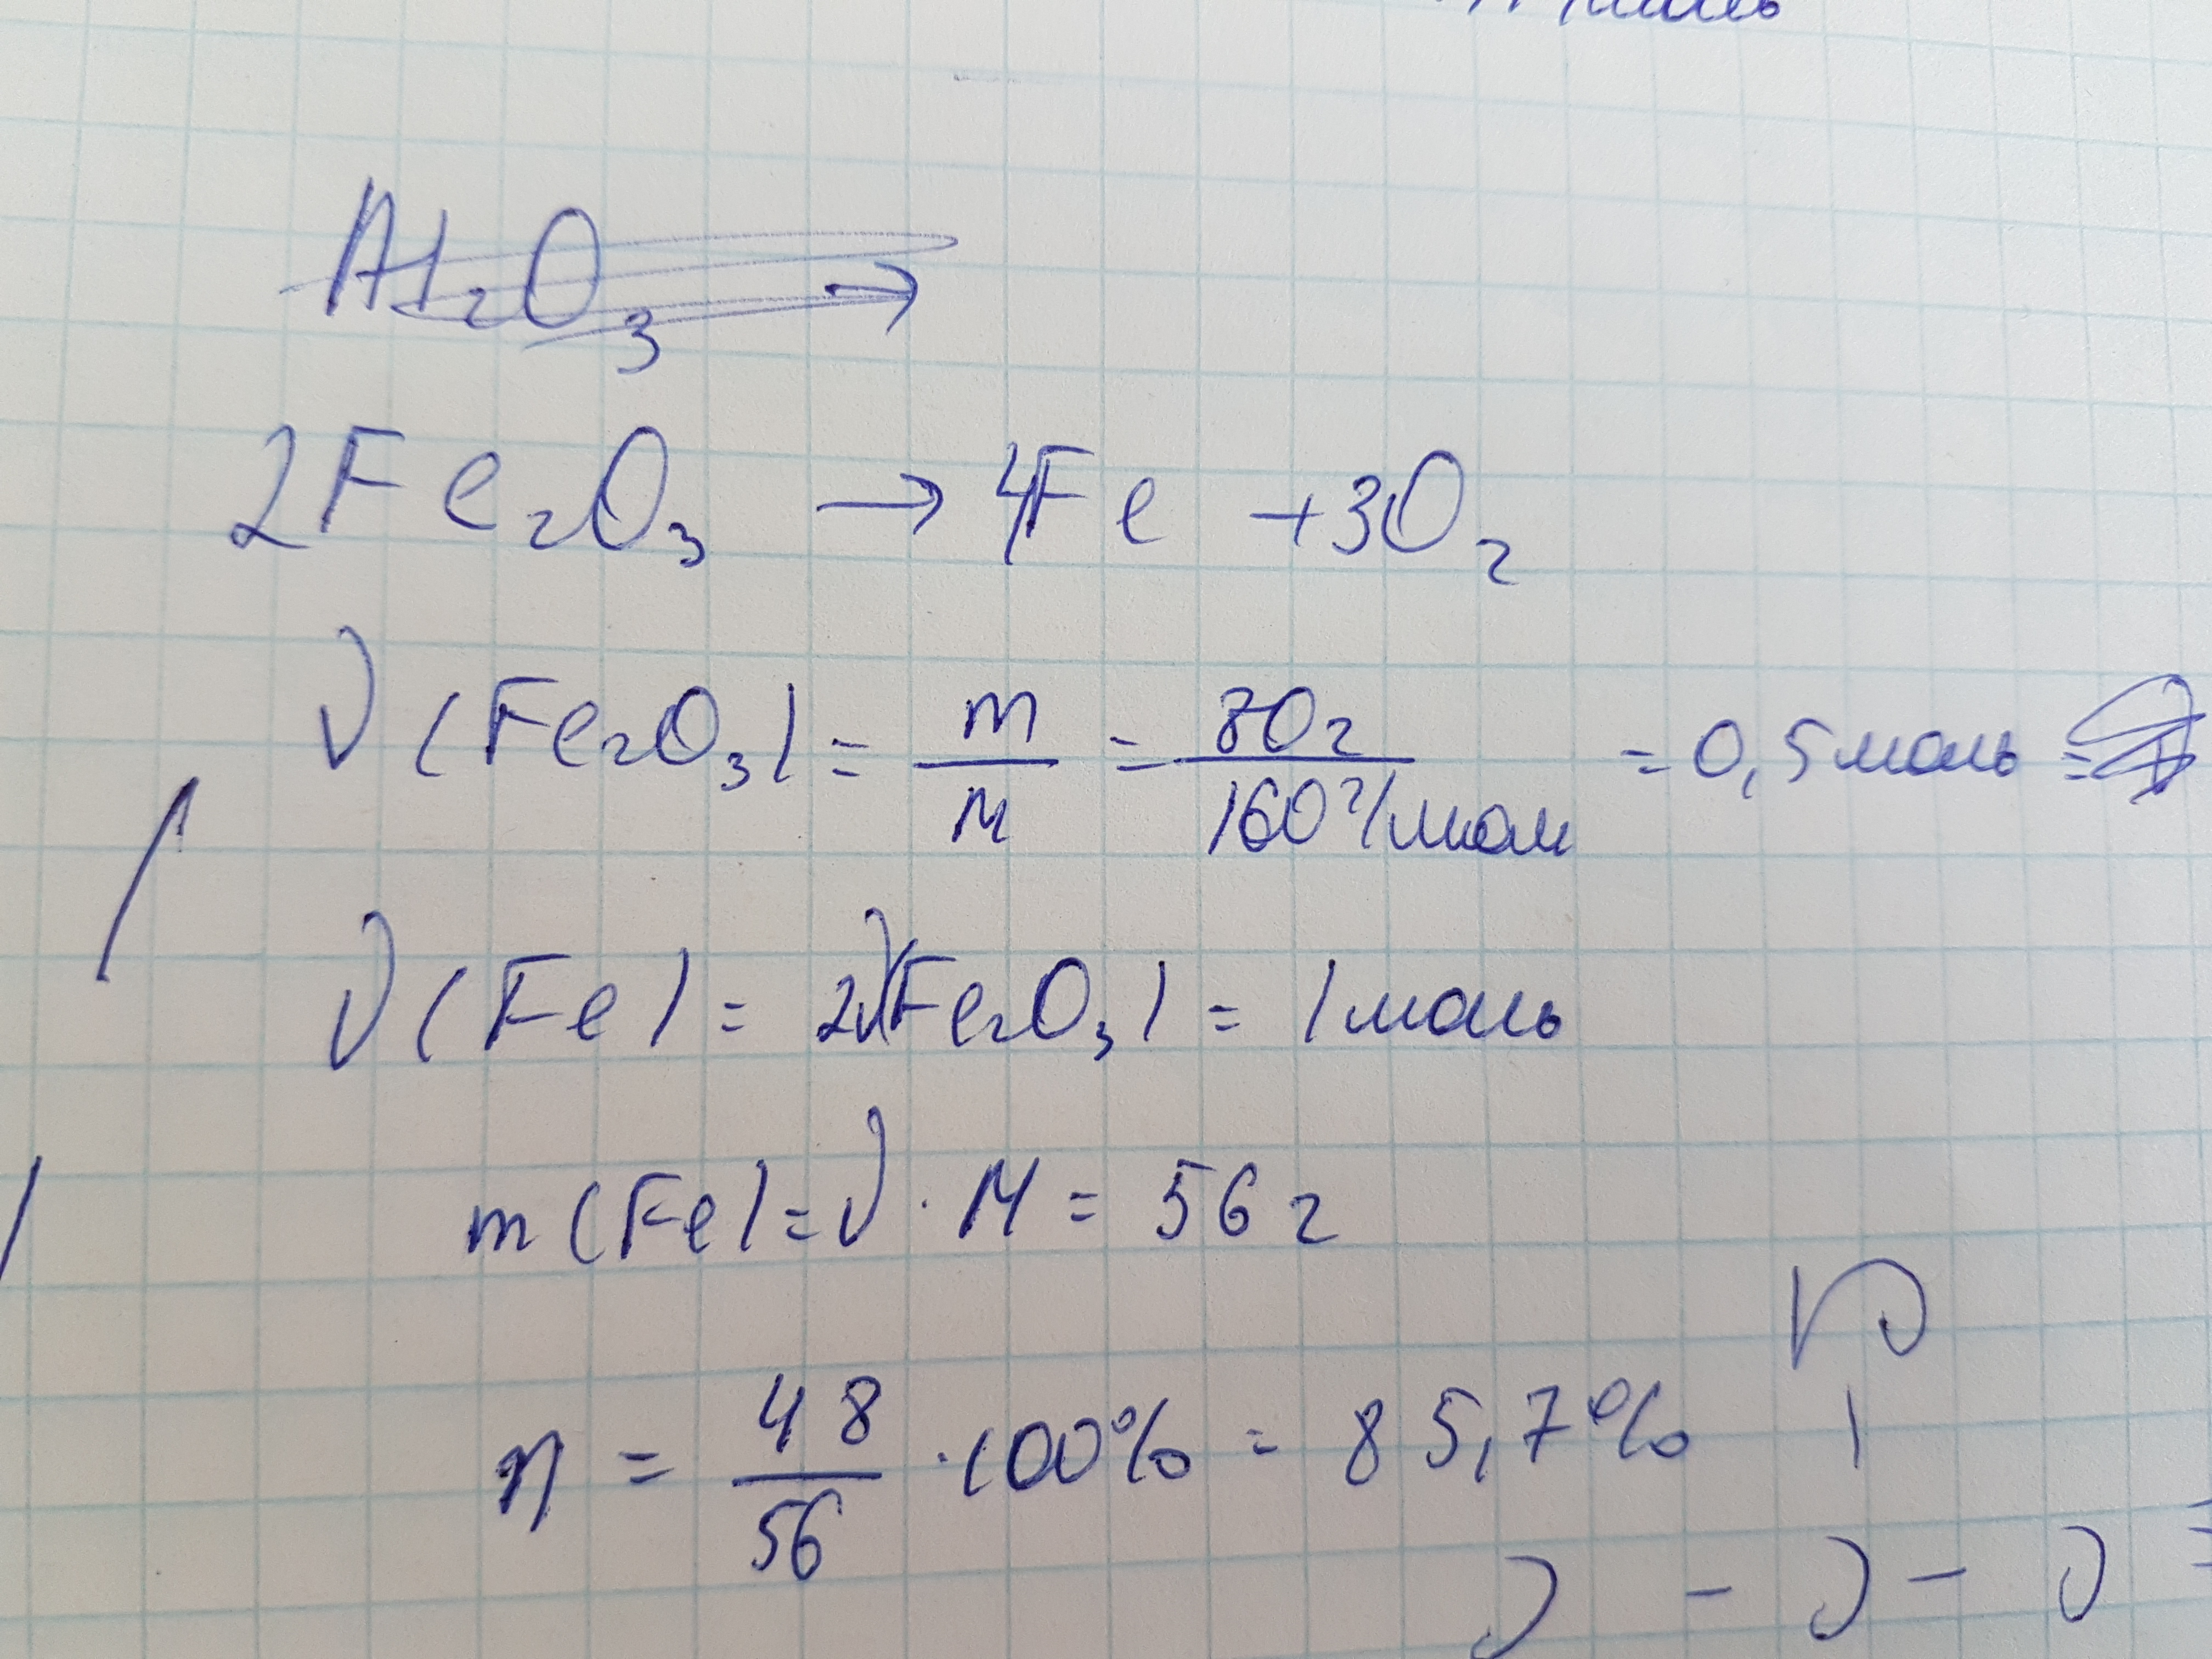 Al₂O₃ →
2Fe₂O₃ → 4Fe + 3O₂
ν(Fe₂O₃) = m/M = 80г/160г/мол = 0,5 моль =
ν(Fe) = 2ν(Fe₂O₃) = 1 моль
m(Fe) = ν · M = 56 г
η = 48/56 · 100% = 85,7%